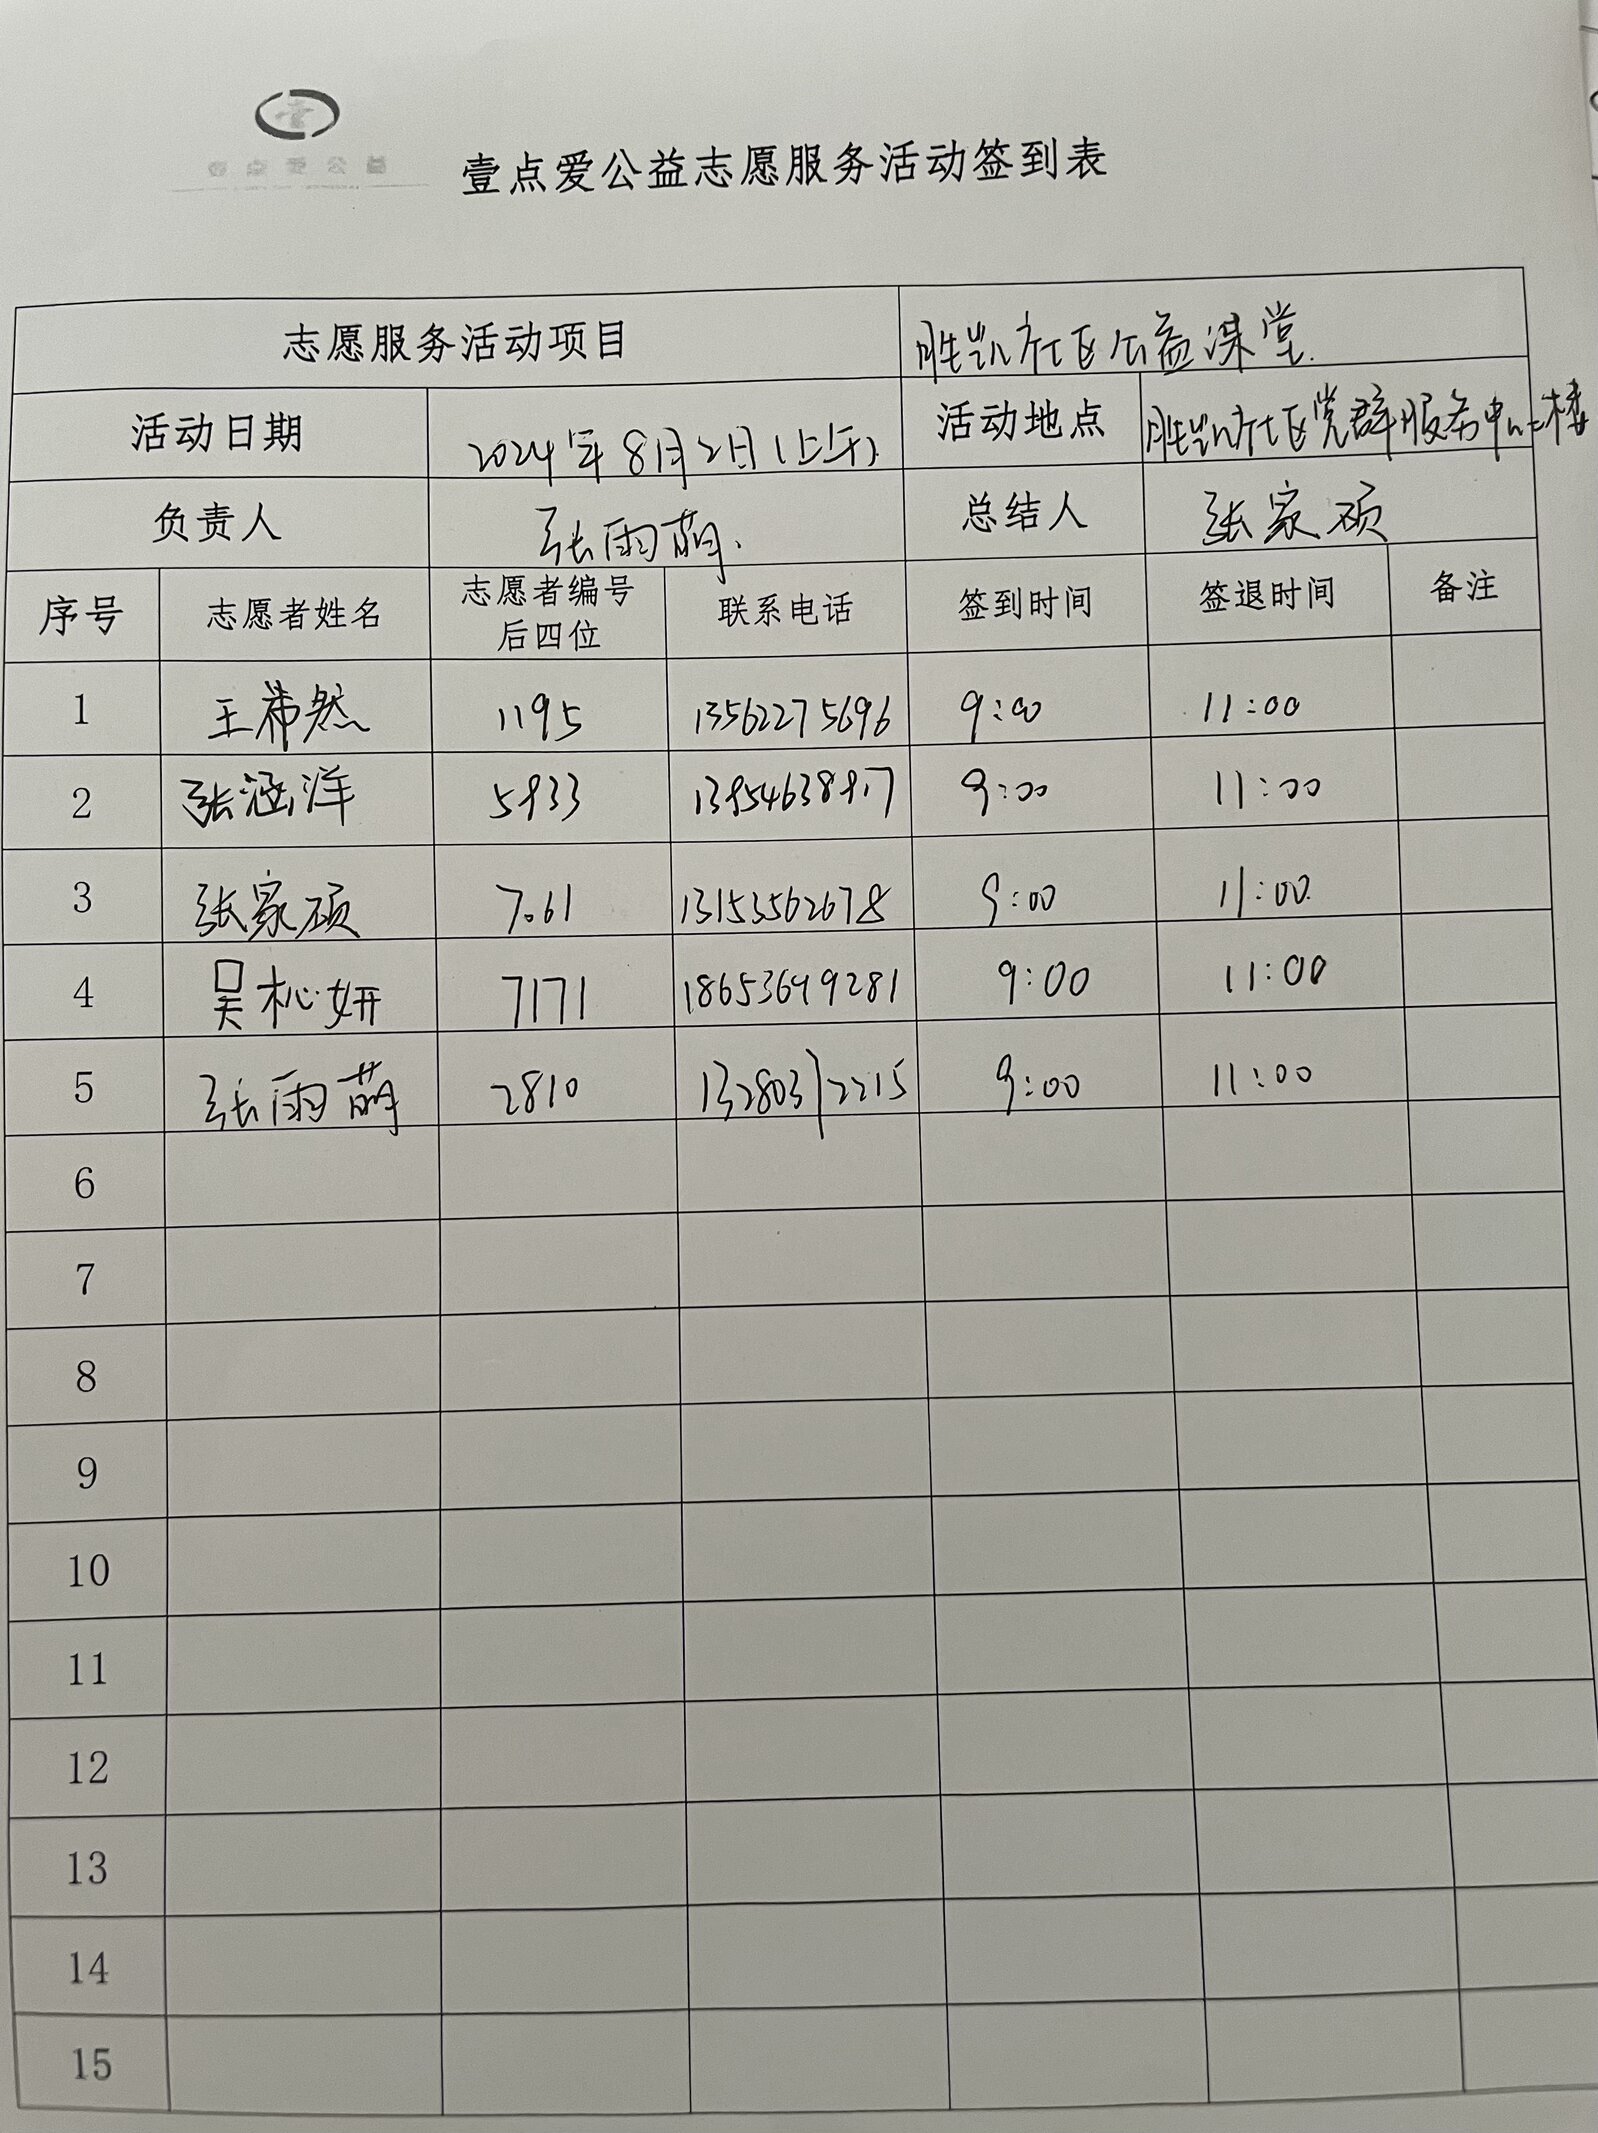 壹点爱公益
壹点爱公益志愿服务活动签到表
志愿服务活动项目 胜凯社区公益课堂.
活动日期 2024年8月2日(上午) 活动地点 胜凯社区党群服务中心二楼
负责人 张雨萌. 总结人 张家硕
序号 志愿者姓名 志愿者编号 联系电话 签到时间 签退时间 备注
后四位
1 王希然 1195 13562275696 9:00 11:00
2 张涵洋 5933 9:00 11:00
3 张家硕 7061 13153562678 9:00 11:00
4 吴 妍 7171 18653649281 9:00 11:00
5 张雨萌 2810 13280312215 9:00 11:00
6
7
8
9
10
11
12
13
14
15